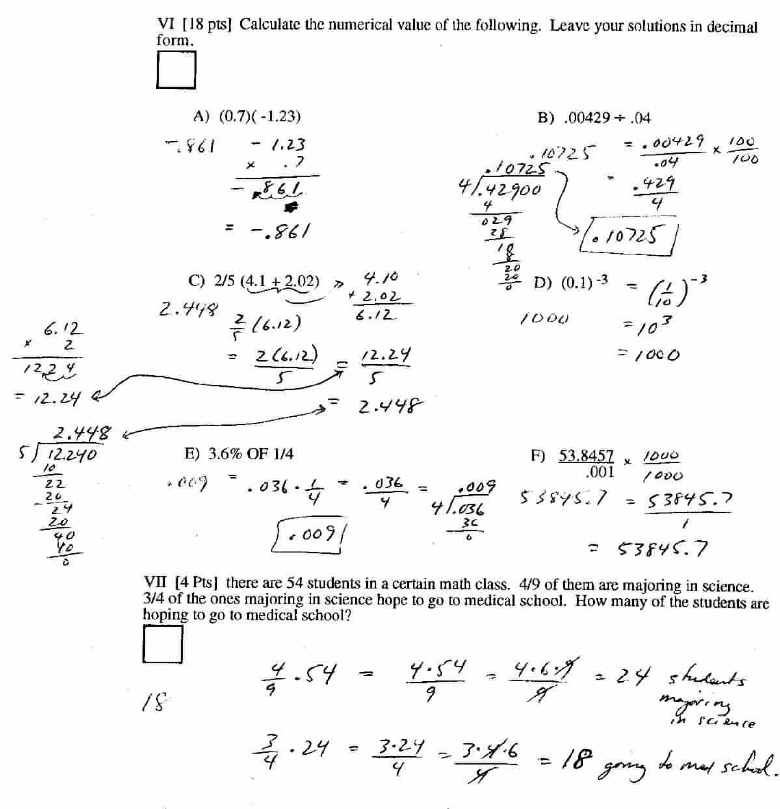 VI [18 pts] Calculate the numerical value of the following. Leave your solutions in decimal
form.
A) (0.7)( -1.23)
-.861
- 1.23
x .7
- .861
= -.861
B) .00429 ÷ .04
.10725
= .00429/.04 x 100/100
= .429/4
.10725
4).42900
4
029
28
18
8
20
20
0
.10725
C) 2/5 (4.1 + 2.02) → 4.10
+ 2.02
6.12
2.448
2/5 (6.12)
= 2(6.12)/5 = 12.24/5
= 2.448
6.12
x 2
12 2 4
= 12.24
2.448
5)12.240
10
22
20
- 24
20
40
40
0
D) (0.1) -3 = (1/10)-3
1000
= 10³
= 1000
E) 3.6% OF 1/4
.009 = .036 · 1/4 = .036/4 =
.009
4).036
36
0
.009
F) 53.8457/.001 x 1000/1000
53845.7 = 53845.7/1
= 53845.7
VII [4 Pts] there are 54 students in a certain math class. 4/9 of them are majoring in science.
3/4 of the ones majoring in science hope to go to medical school. How many of the students are
hoping to go to medical school?
4/9 · 54 = 4·54/9 = 4·6·9/9 = 24 students
majoring
in science
18
3/4 · 24 = 3·24/4 = 3·4·6/4 = 18 going to med school.